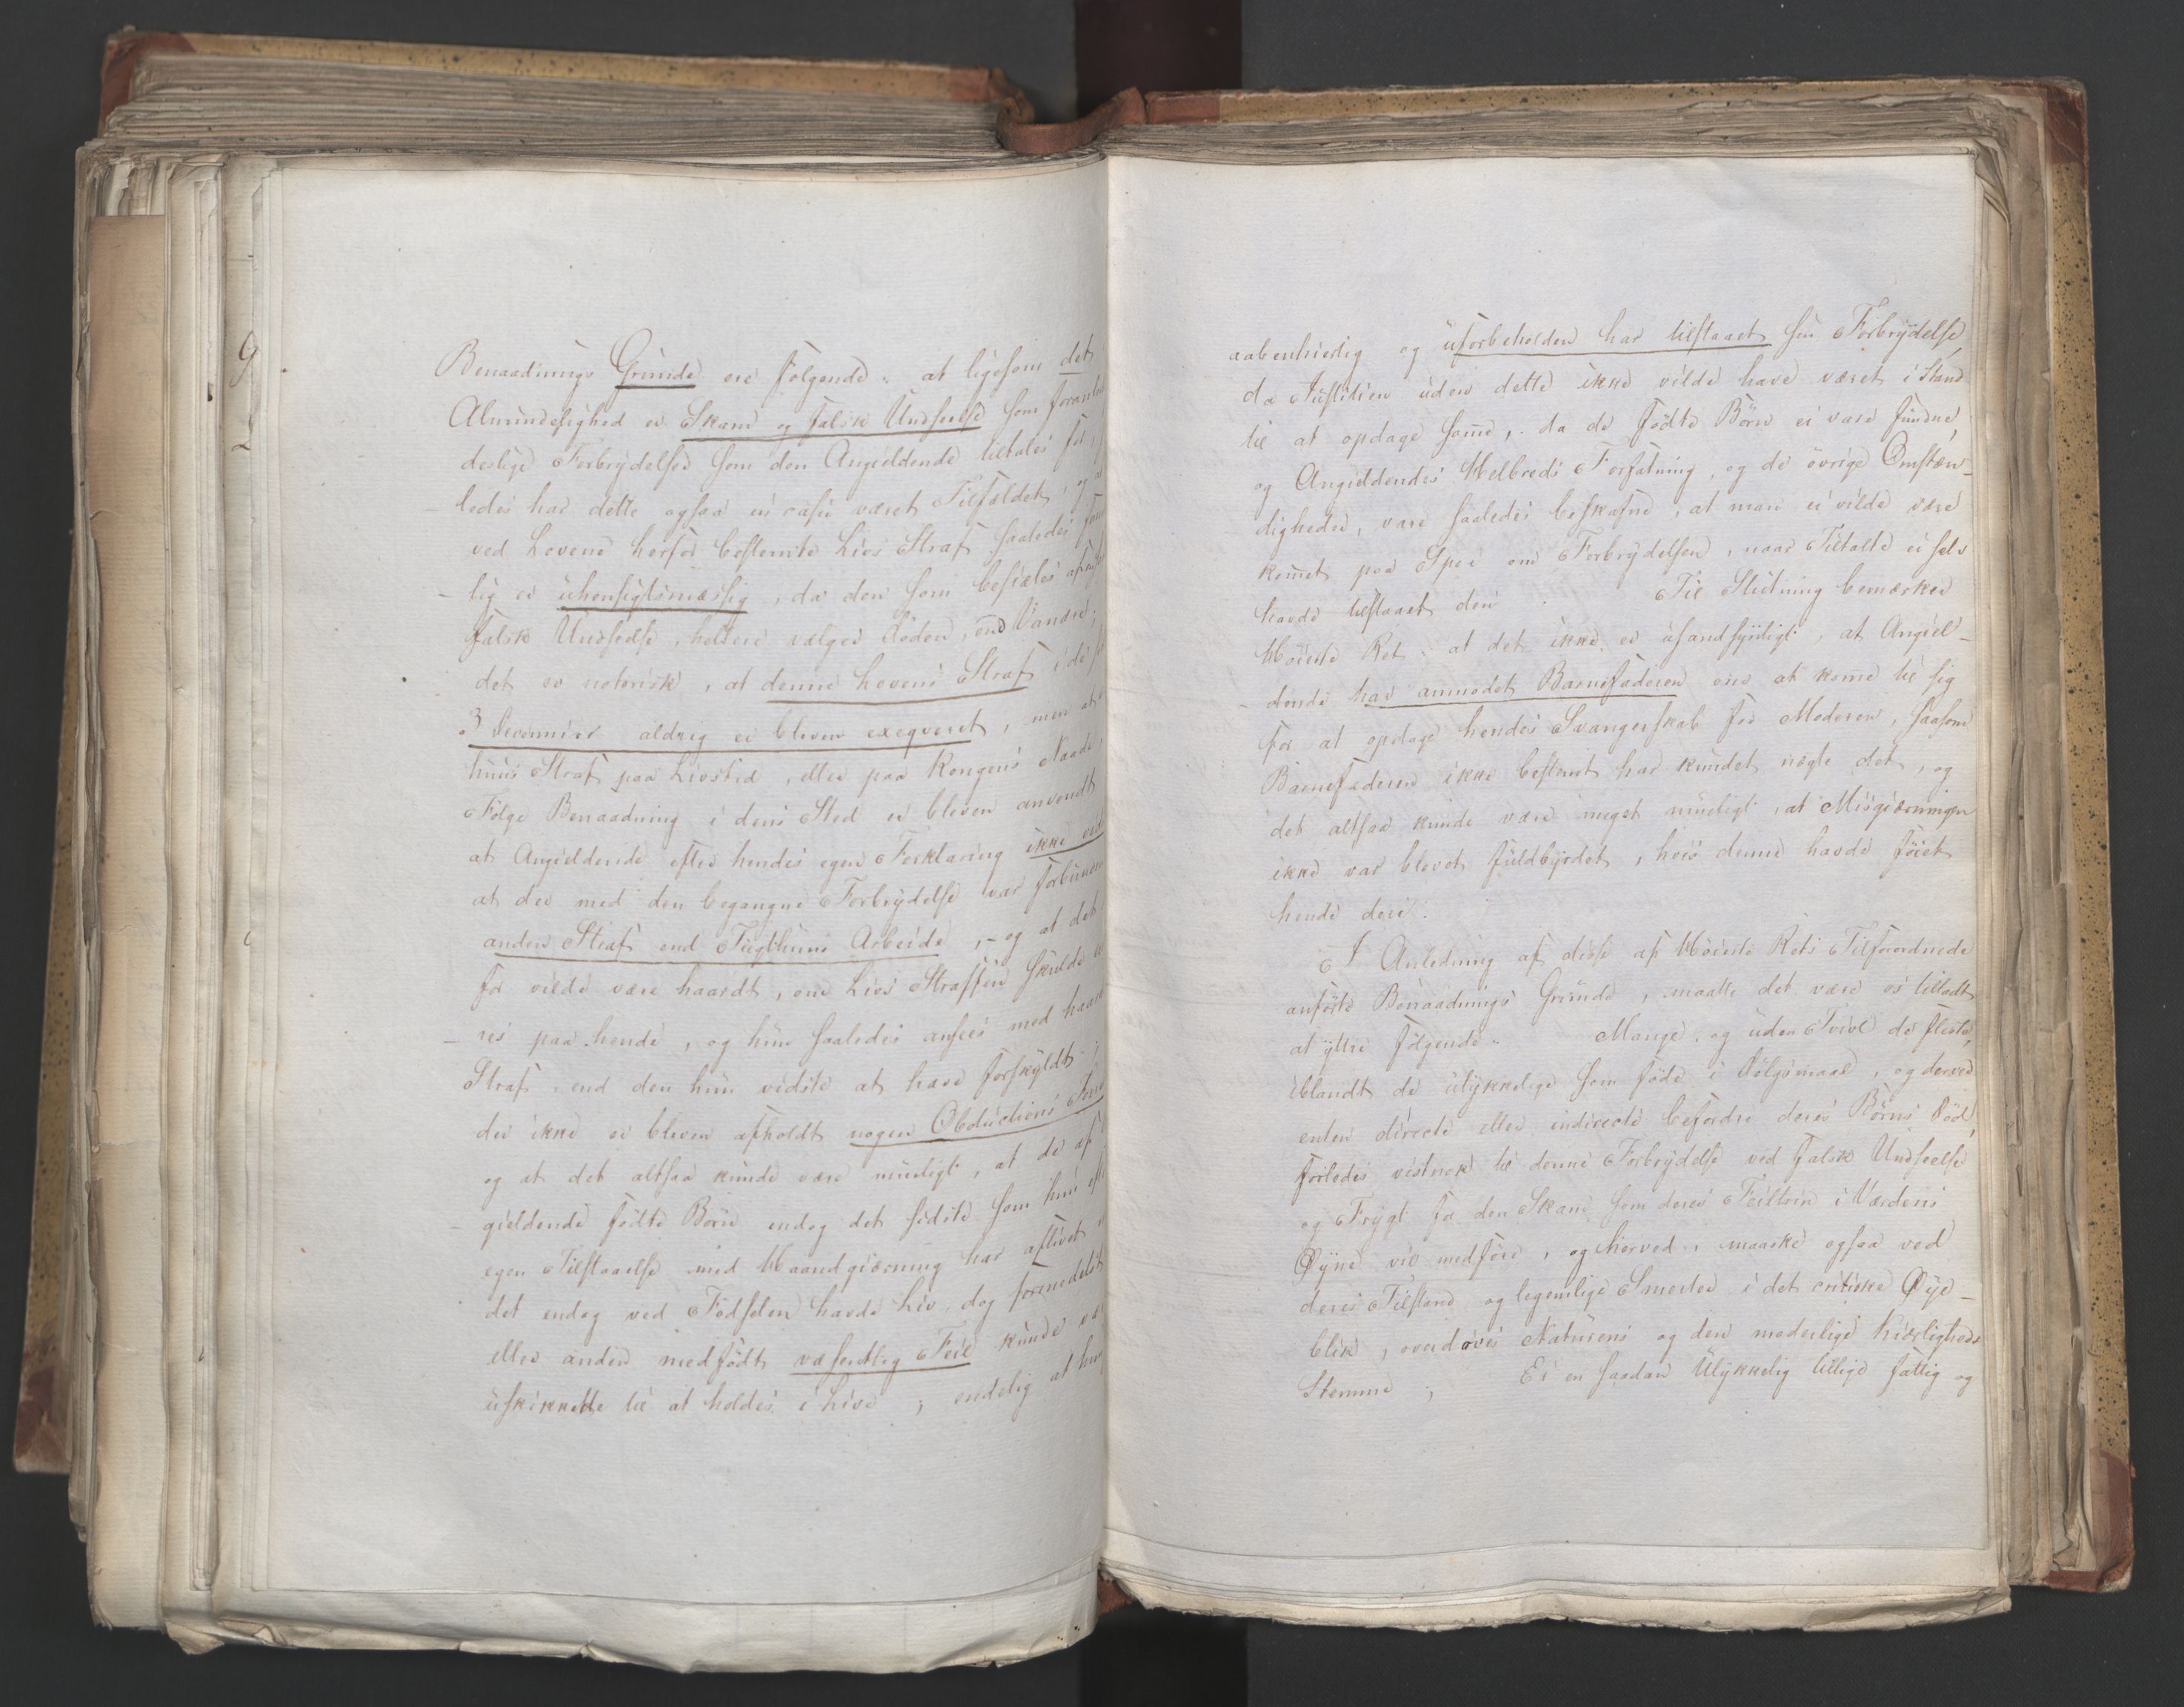 Benaadnings Grunde ere følgende: at ligesom det
Almindelighed er Skam og falsk Undseelse som foranle
deslige Forbrydelser som den Angieldende tiltales for,
ledes har dette ogsaa in casu været Tilfældet, og
ved Lovene herfor bestemte Livs Straf saaledes
lig er uhensigtsmæssig, da den som besieles af
falsk Undseelse, hellere vælger Døden, end Vanære;
det er notorisk, at denne Lovens Straf i de
3 Decennier aldrig er bleven exeqveret, men at
huus Straf paa Livstid, eller paa Kongens Naade,
Følge Benaadning i dens Sted er bleven anvendt
at Angieldende efter hendes egen Forklaring ikke
at der med den begangne Forbrydelse var forbunden
anden Straf end Tugthuus Arbeide, - og at det
for vilde være haardt, om Livs Straffen skulde
res paa hende, og hun saaledes ansees med haar
Straf, end den hun vidste at have forskyldt;
der ikke er bleven afholdt nogen Obductions
og at det altsaa kunde være mueligt, at de af
gieldende fødte Børn endog det sidste som hun
egen Tilstaaelse med Haandgierning har aflivet
det endog ved Fødselen havde Liv, dog formedelst
eller anden medfødt væsentlig Feil kunde
uskikkede til at holdes i Live; endelig at hun
aabenhiertig og uforbeholden har tilstaaet sin Forbrydelse,
da Justitien uden dette ikke vilde have været i Stand
til at opdage samme, da de fødte Børn ei vare fundne,
og Angieldendes Helbreds Forfatning, og de øvrige Omstæn-
digheder, vare saaledes beskafne, at man ei vilde være
kommet paa Spor om Forbrydelsen, naar Tiltalte ei selv
havde tilstaaet den. Til Slutning bemærker
Høieste Ret: at det ikke er usandsynligt, at Angiel-
dende har anmodet Barnefaderen om at komme til sig
for at opdage hendes Svangerskab for Moderen, saasom
Barnefaderen ikke bestemt har kundet nægte det, og
det altsaa kunde være meget mueligt, at Misgierningen
ikke var blevet fuldbyrdet, hvis denne havde føiet
hende deri.
I Anledning af disse af Høieste Rets Tilforordnede
anførte Benaadnings Grunde, maatte det være os tilladt
at yttre følgende: Mange, og uden Tvivl de fleste,
iblandt de ulykkelige som føde i Dølgsmaal, og derved
enten directe eller indirecte befordre deres Børns Død,
forledes vistnok til denne Forbrydelse ved falsk Undseelse
og Frygt for den Skam som deres Feiltrin i Verdens
Øyne vil medføre, og herved, maaske ogsaa ved
deres Tilstand og legemlige Smerter i det critiske Øye-
blik, overdøves Naturens og den moderlige Kierligheds
Stemme; Er en saadan Ulykkelig tillige fattig og